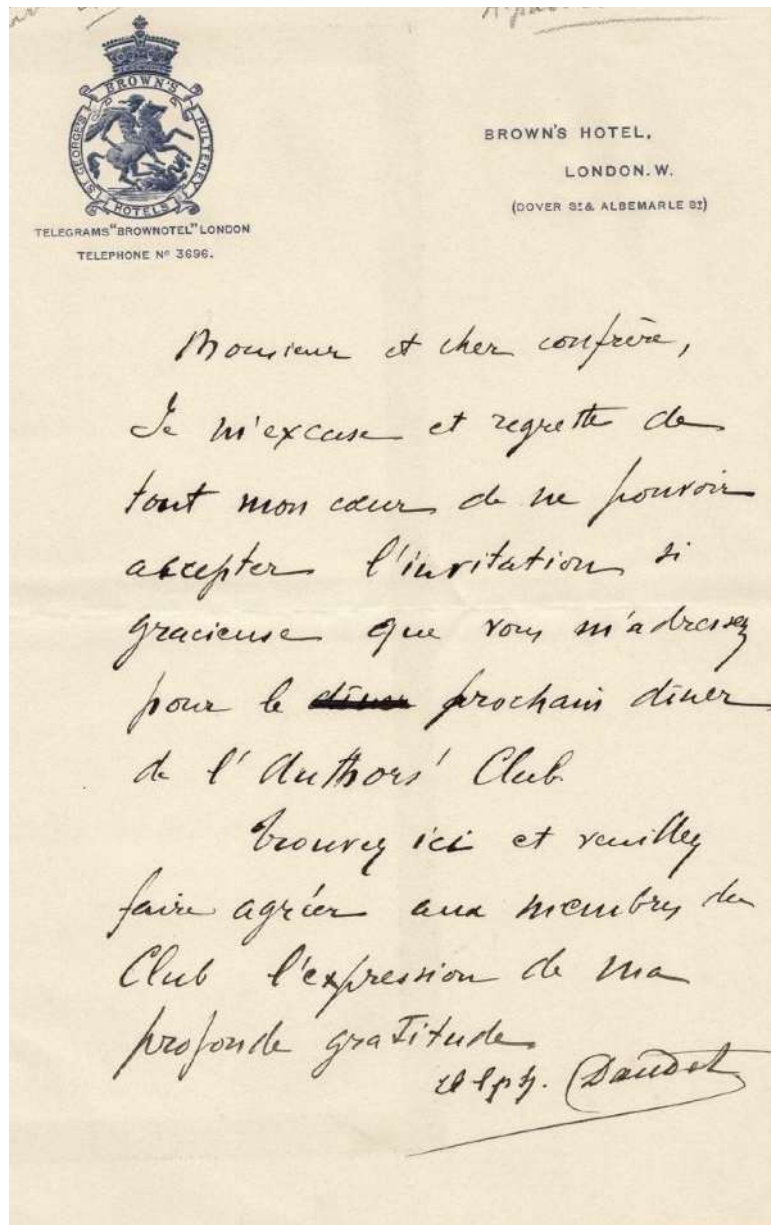 BROWN'S
ST GEORGE'S
PULTENEY
HOTELS
TELEGRAMS "BROWNOTEL" LONDON
TELEPHONE No 3696.
BROWN'S HOTEL,
LONDON. W.
(DOVER ST & ALBEMARLE ST)
Monsieur et cher confrère,
Je m'excuse et regrette de
tout mon cœur de ne pouvoir
accepter l'invitation si
gracieuse que vous m'adressez
pour le diner prochain diner
de l'Authors' Club
Trouvez ici et veuillez
faire agréer aux membres du
Club l'expression de ma
profonde gratitude
Alph. Daudet